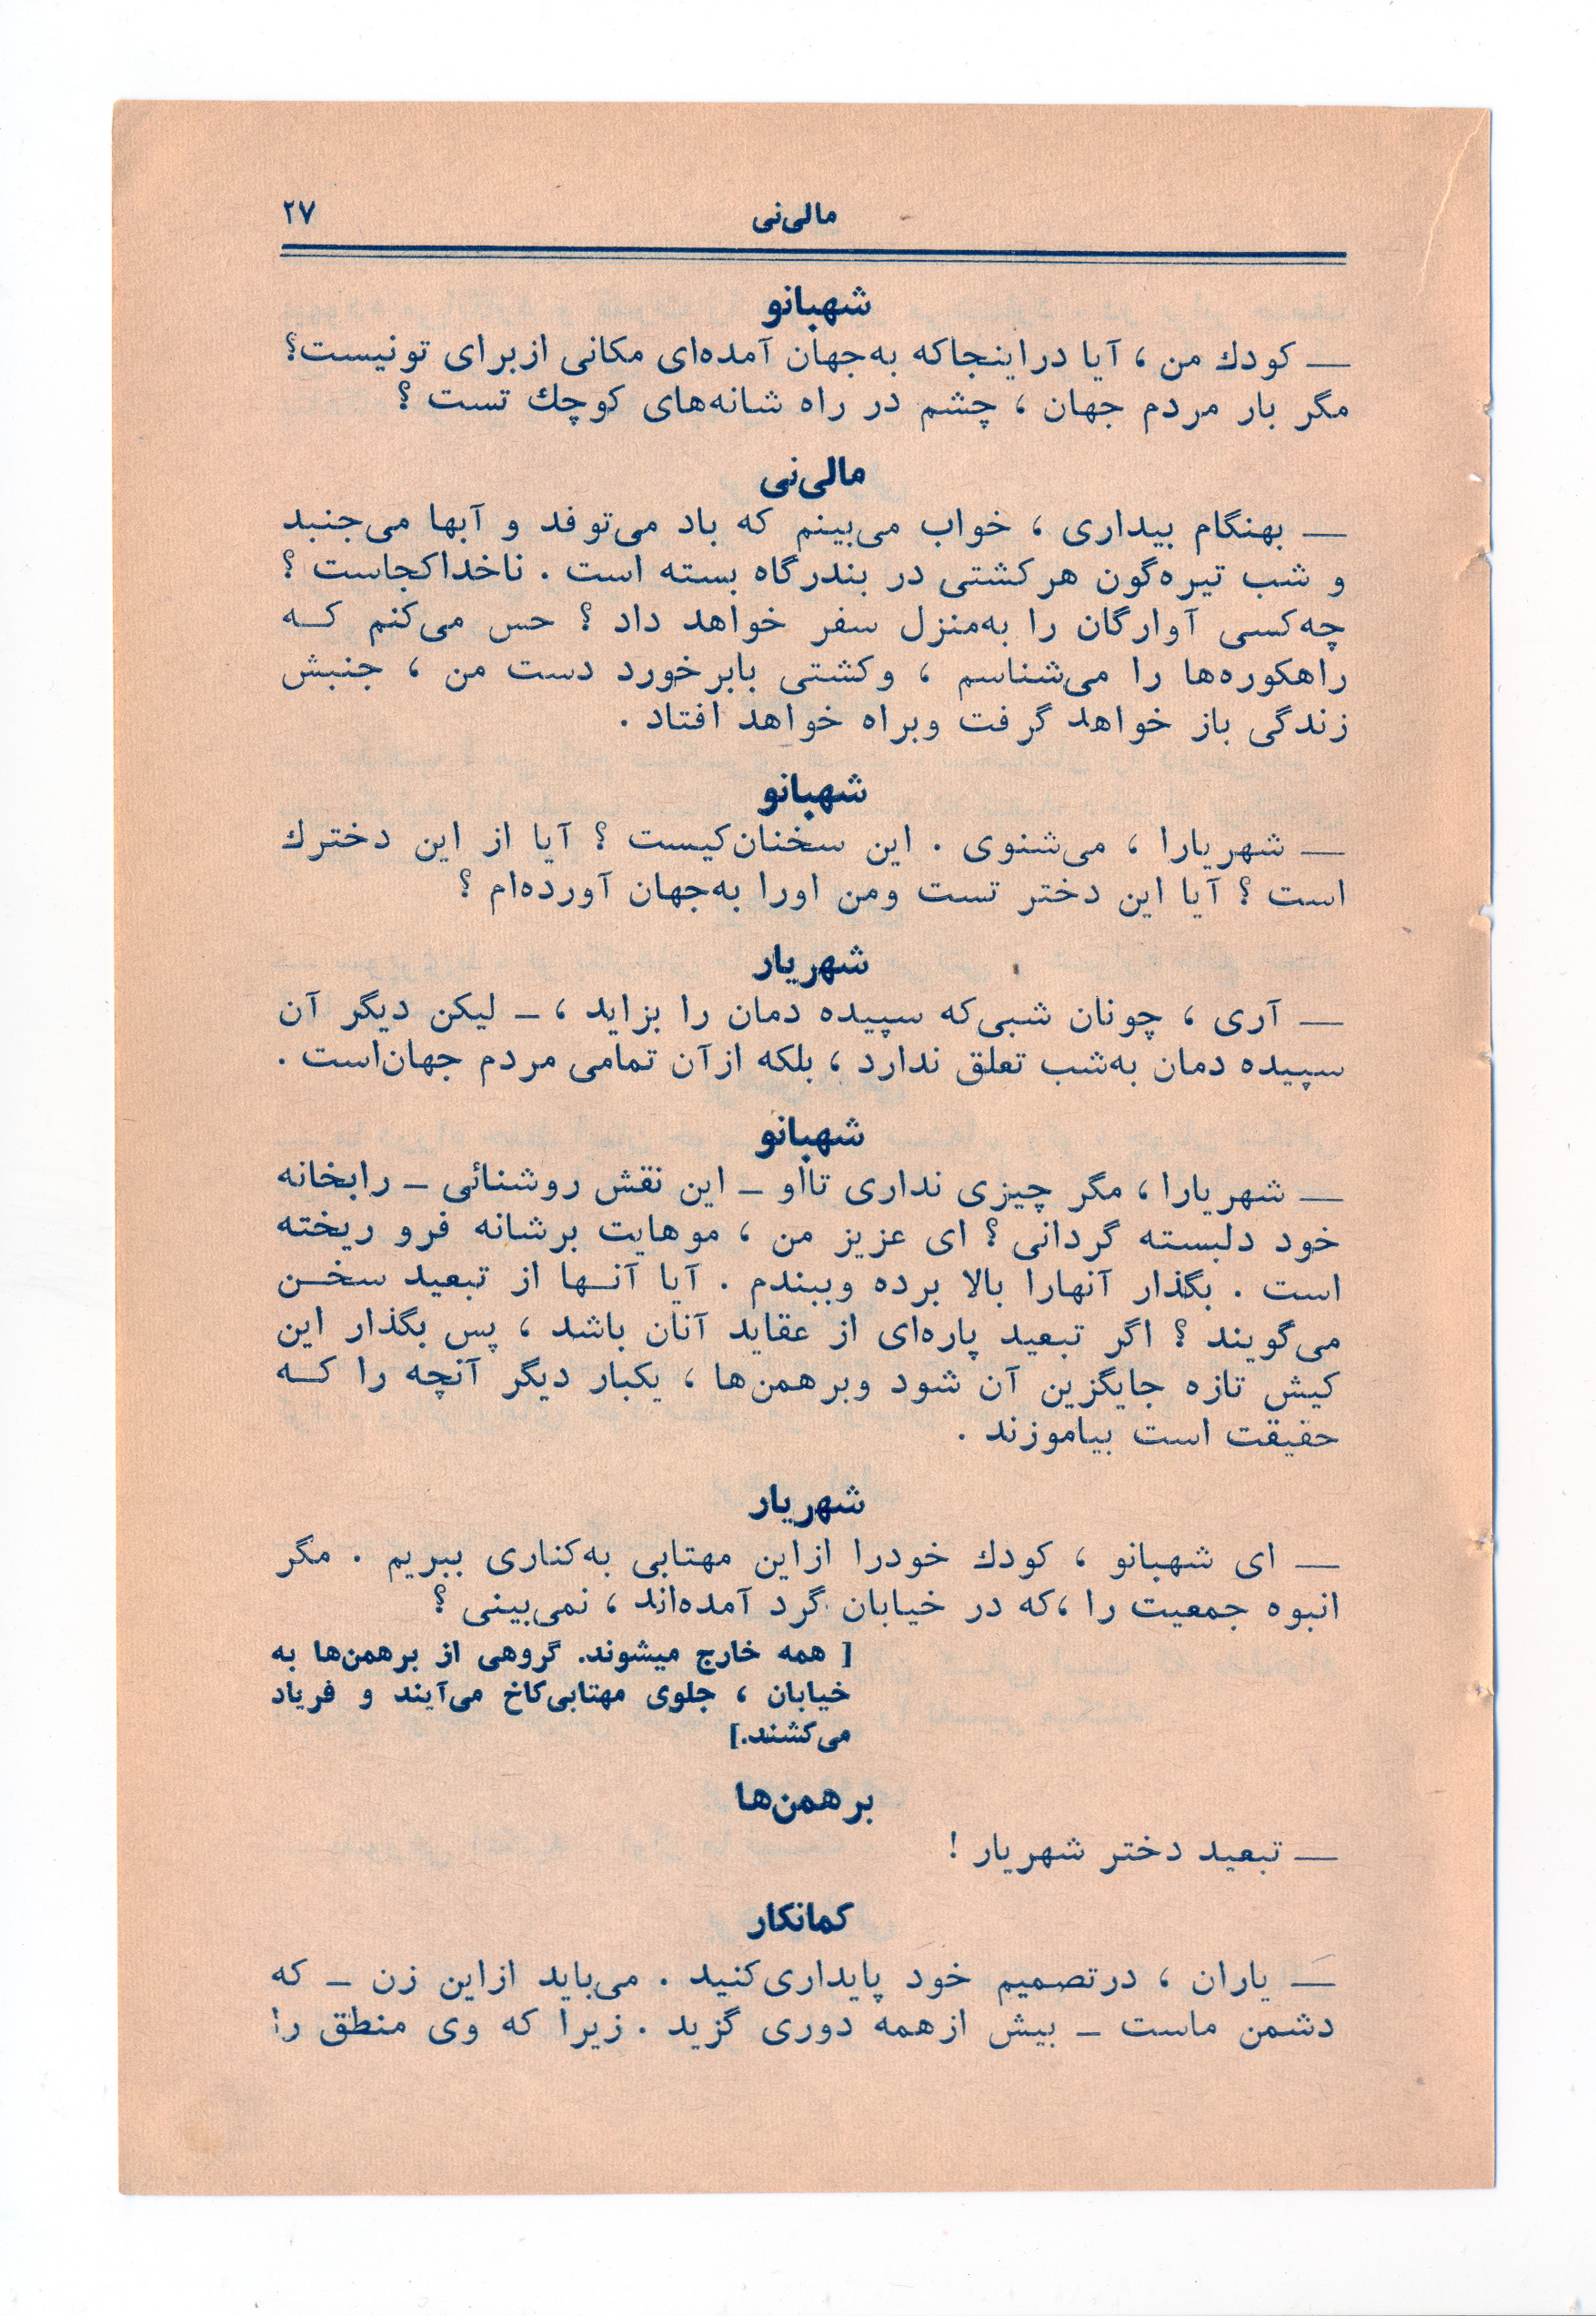 مالی‌نی ۲۷
شهبانو
— کودك من ، آیا دراینجاکه به‌جهان آمده‌ای مکانی ازبرای تونیست؟
مگر بار مردم جهان ، چشم در راه شانه‌های کوچك تست ؟
مالی‌نی
— بهنگام بیداری ، خواب می‌بینم که باد می‌توفد و آبها می‌جنبد
و شب تیره‌گون هرکشتی در بندرگاه بسته است . ناخداکجاست ؟
چه‌کسی آوارگان را به‌منزل سفر خواهد داد ؟ حس می‌کنم کــه
راهکوره‌ها را می‌شناسم ، وکشتی بابرخورد دست من ، جنبش
زندگی باز خواهد گرفت وبراه خواهد افتاد .
شهبانو
— شهریارا ، می‌شنوی . این سخنان‌کیست ؟ آیا از این دخترك
است ؟ آیا این دختر تست ومن اورا به‌جهان آورده‌ام ؟
شهریار
— آری ، چونان شبی‌که سپیده دمان را بزاید ، – لیکن دیگر آن
سپیده دمان به‌شب تعلق ندارد ، بلکه ازآن تمامی مردم جهان‌است .
شهبانو
— شهریارا ، مگر چیزی نداری تااو – این نقش روشنائی – رابخانه
خود دلبسته گردانی ؟ ای عزیز من ، موهایت برشانه فرو ریخته
است . بگذار آنهارا بالا برده وببندم . آیا آنــها از تبعید سخــن
می‌گویند ؟ اگر تبعید پاره‌ای از عقاید آنان باشد ، پس بگذار این
کیش تازه جایگزین آن شود وبرهمن‌ها ، یکبار دیگر آنچه را کــه
حقیقت است بیاموزند .
شهریار
— ای شهبانو ، کودك خودرا ازاین مهتابی به‌کناری ببریم . مگر
انبوه جمعیت را ،که در خیابان گرد آمده‌اند ، نمی‌بینی ؟
[ همه خارج میشوند. گروهی از برهمن‌ها به
خیابان ، جلوی مهتابی‌کاخ می‌آیند و فریاد
می‌کشند.]
برهمن‌ها
— تبعید دختر شهریار !
کمانکار
— یاران ، درتصمیم خود پایداری‌کنید . می‌باید ازاین زن – که
دشمن ماست – بیش ازهمه دوری گزید . زیرا که وی منطق را